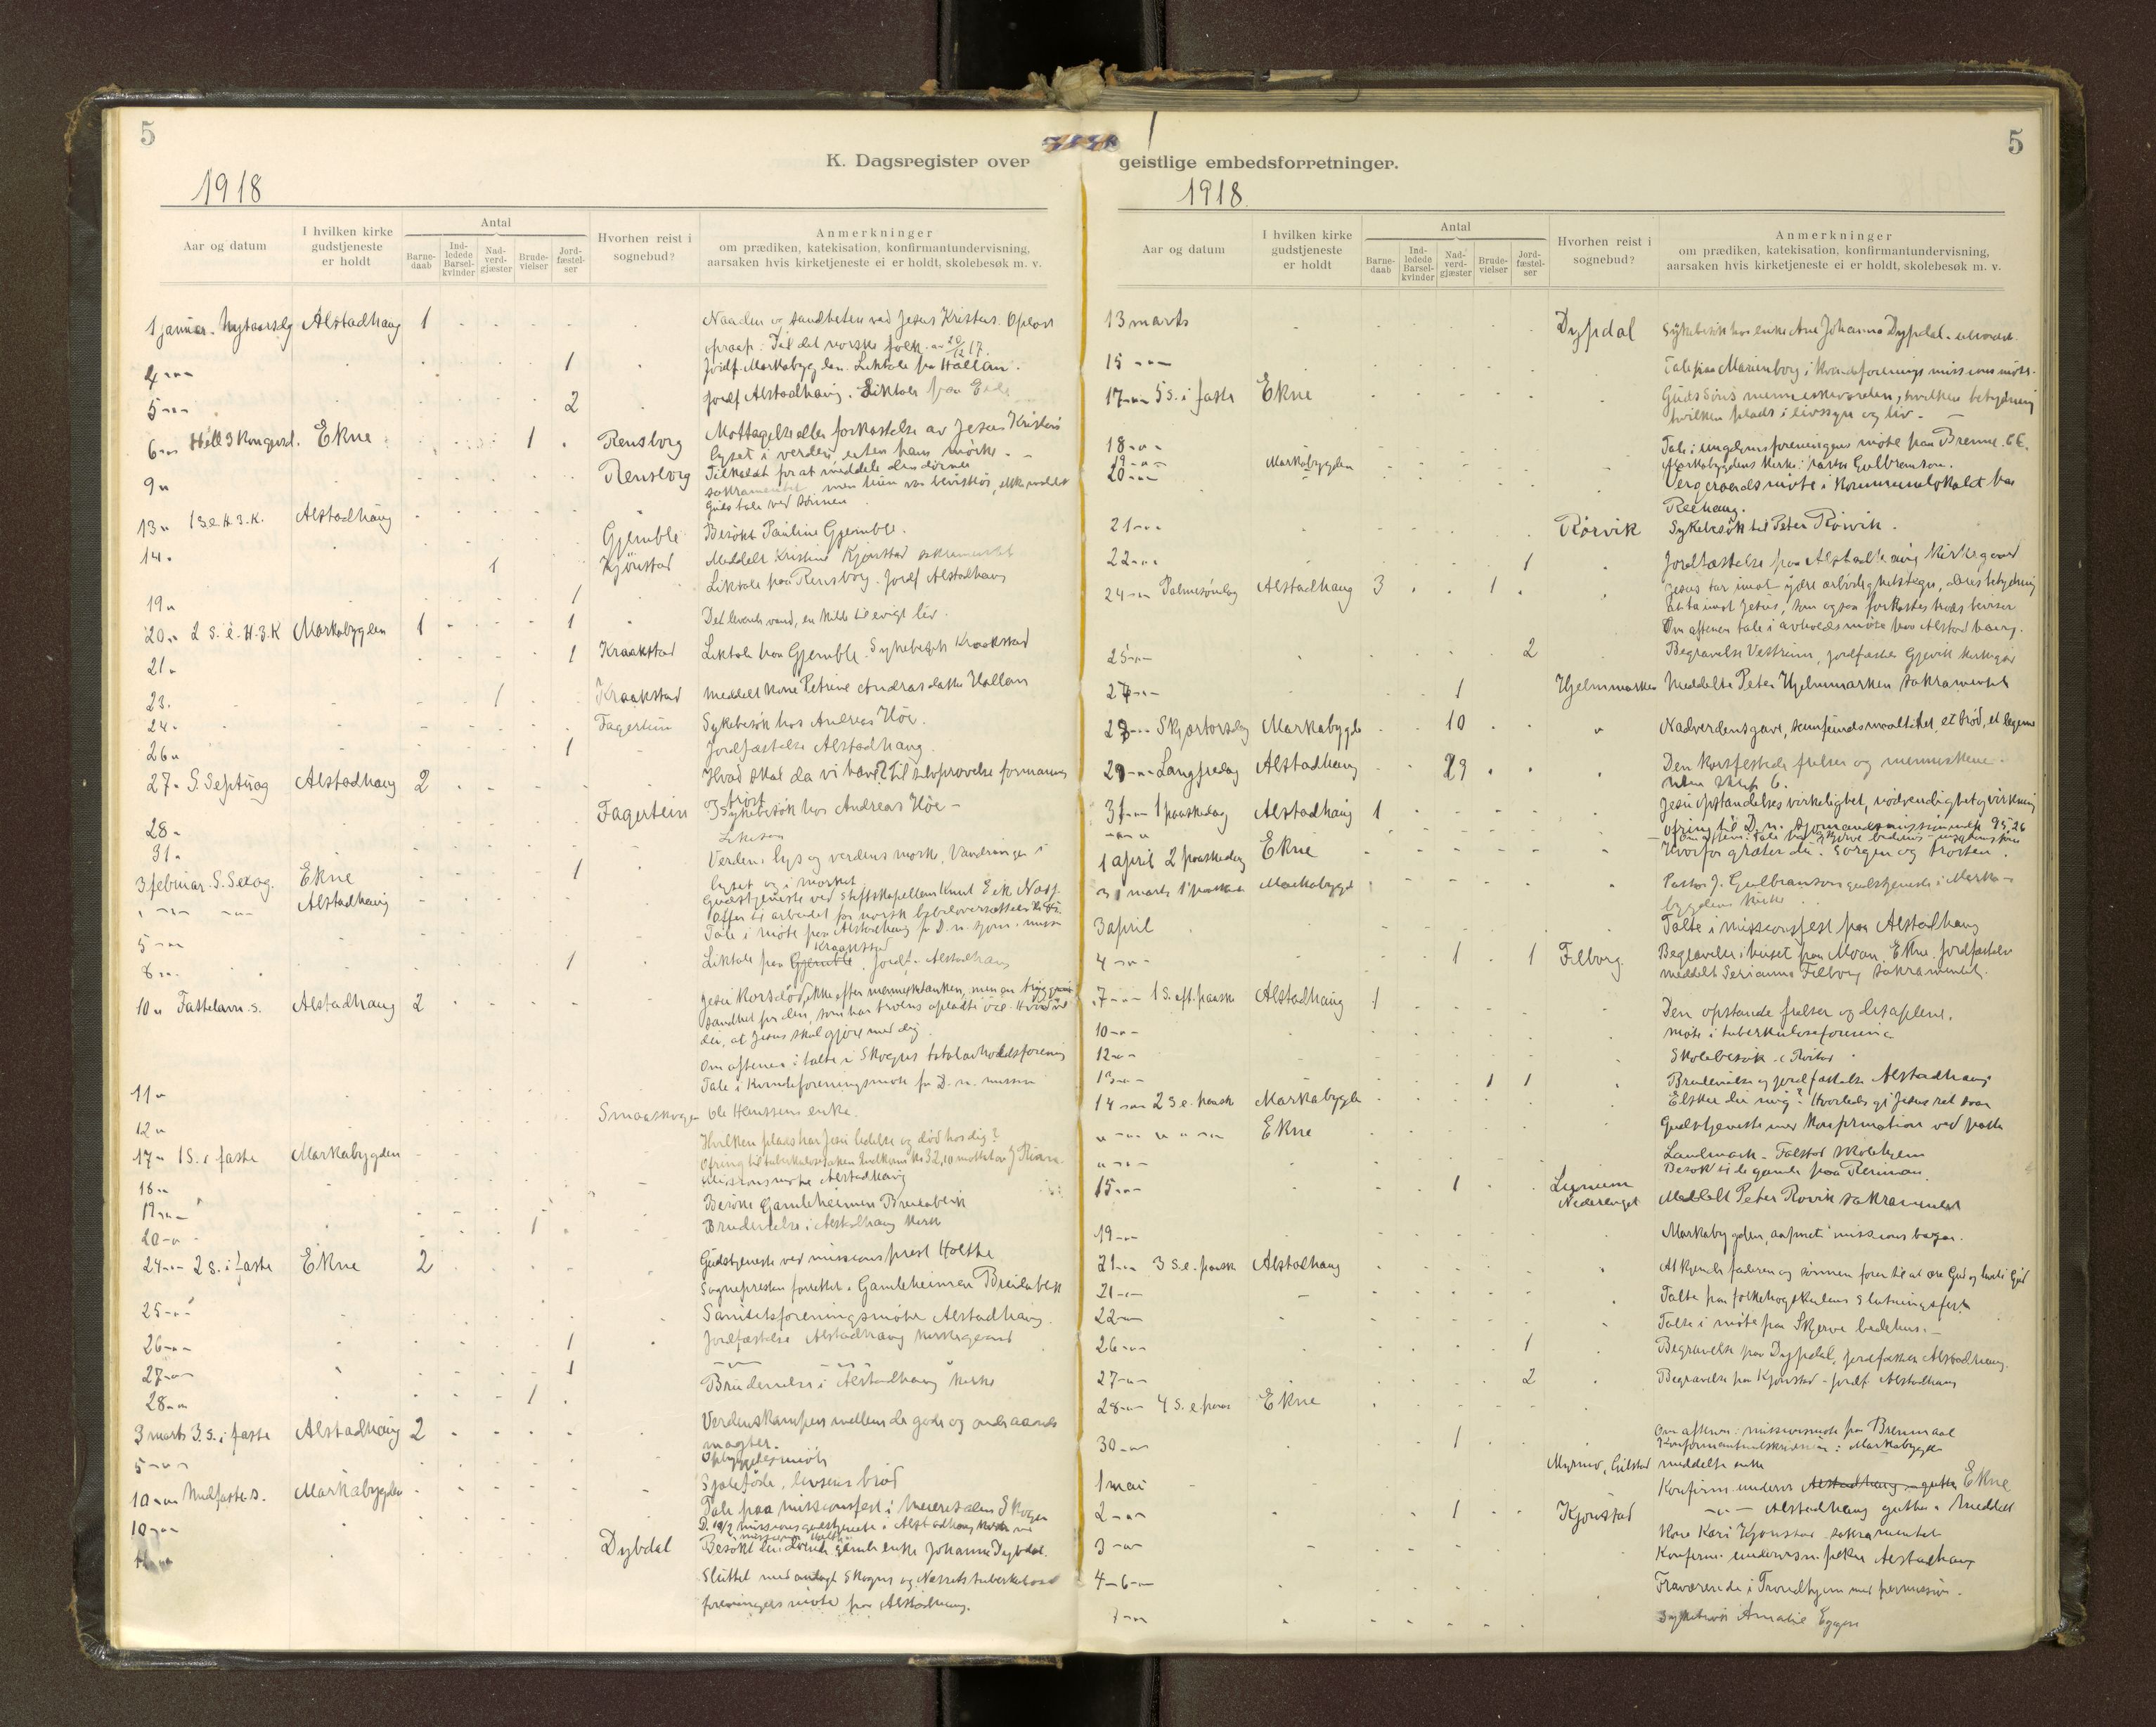 5
K. Dagsregister over
1918
Aar og datum
I hvilken kirke gudstjeneste er holdt
Antal
Barne-daab
Ind-ledede Barsel-kvinder
Nad-verd-gjæster
Brude-vielser
Jord-fæstel-ser
Hvorhen reist i sognebud?
Anmerkninger
om prædiken, katekisation, konfirmantundervisning,
aarsaken hvis kirketjeneste ei er holdt, skolebesøk m. v.
1 januar. Nytaarsdg Alstadhaug 1 Naaden og sandheten ved Jesus Kristus. Oplæst
opraap: Til det norske folk. av 20/12 17.
4 1 Jordf. Markabygden. Liktale paa Hallan.
5 2 Jordf. Alstadhaug. Liktale paa
6 Hell 3 Kongersd. Ekne 1 Rensborg Mottagelse eller forkastelse av Jesus Kristus
lyset i verden, enten ham mørke.
9 Rensborg Tilkaldt for at meddele den døende
sakramentet, men hun var bevistløs
Guds tale ved sønnen
13 1 S.e.H.3.K. Alstadhaug
14. Gjemble Besøkt Pauline Gjemble.
1 Kjønstad Meddelt Kristine Kjønstad sakramentet
19 1 Liktale paa Rensborg. Jordf Alstadhaug
20 2 S. e. H.3.K Markabygden 1 1 Det levende vand, en kilde til evigt liv.
21 1 Kraakstad Liktale paa Gjemble. Sykebesøk Kraakstad
23. 1 Kraakstad Meddelt Kone Petrine Andrasdatter Hallan
24. Fagertun Sykebesøk hos Andreas Höe.
26 1 Jordfæstelse Alstadhaug.
27. S. Septuag Alstadhaug 2 Hvad skal da vi have? Til selvprøvelse formaning
trøst
28. Fagertun Sykebesøk hos Andreas Höe
31. Verdens lys og verdens mørke, Vandringen i
3 februar. S. Sexag. Ekne 1 lyset og i mørket
Alstadhaug Gudstjeneste ved Stiftskapellan Knut Eik Næss.
Offer til arbeidet for norsk bibeloversættelse
5 Tale i møte paa Alstadhaug for D. n. sjøm. miss
8 1 Liktale paa Kraakstad Gjemble. Jordf. Alstadhaug
10 Fastelavn. s. Alstadhaug 2 Jesu Korsdöd, ikke efter mennesketanken, men en
sandhet for den, som har troens opladte öie. Hvad vil
du, at Jesus skal gjøre med dig.
Om aftenen: talte i Skogns totalavholdsforening
11 Tale i Kvindeforeningsmøte for D. n. mission
12 Smaaskogen Ole Hanssens enke.
17 1 S. i faste Markabygden Hvilken plads har Jesu lidelse og död hos dig?
Ofring til tuberkulosesaken indkom kr 32,10
18 Missionsmøte Alstadhaug
19 Besøkt Gamleheimen Breidablik
20 1 Brudevielse i Alstadhaug kirke
24 2 s. i faste Ekne 2 Gudstjeneste ved missionsprest Holthe
Sognepresten forrettet i Gamleheimen Breidablik
25 Sanitetsforeningsmøte Alstadhaug.
26 1 Jordfæstelse Alstadhaug kirkegaard
27 1
28 1 Brudevielse i Alstadhaug kirke
3 marts 3. s. i faste Alstadhaug 2 Verdenskampen mellem de gode og onde aands
magter.
5 Opbyggelsesmøte
10 Midfaste s. Markabygden Sjæleføde, livsens brød
10 Tale paa missionsfest i meierisalen Skogn
D. 10/2 missionsgudstjeneste i Alstadhaug kirke ved
Dybdal Besøkt gamle enke Johanna Dybdal.
Sluttet med Skogns og Næssets tuberkulose
foreningers møte paa Alstadhaug.
5
geistlige embedsforretninger.
1918.
Aar og datum
I hvilken kirke gudstjeneste er holdt
Antal
Barne-daab
Ind-ledede Barsel-kvinder
Nad-verd-gjæster
Brude-vielser
Jord-fæstel-ser
Hvorhen reist i sognebud?
Anmerkninger
om prædiken, katekisation, konfirmantundervisning,
aarsaken hvis kirketjeneste ei er holdt, skolebesøk m. v.
13 marts Dypdal Sykebesøk hos enke Ane Johanna Dypdal.
15 Tale paa Marienborg i Kvindeforenings missionsmøte.
17 5 S. i faste Ekne Guds Søns menneskevorden, hvilken betydning
hvilken plads i livssyn og liv.
18 Tale i ungdomsforeningens møte paa Brenne.
19 Markabygden Markabygdens kirke: pastor Gulbranson.
20 Vergeraadsmøte i Kommunelokalet hos
Reehaug.
21 Rörvik Sykebesøk til Peter Rövik.
22 1 Jordfæstelse paa Alstadhaug Kirkegaard
24 Palmesøndag Alstadhaug 3 1 Jesus tar imot ydre ærbødighetstegn, deres betydning
At ta imot Jesus, som ogsaa forkastes
Om aftenen tale i avholdsmøte paa Alstadhaug.
25 2 Begravelse Vestrum, jordfæstes Gjevik kirkegaard
27 1 Hjelmmarken Meddelte Peter Hjelmmarken sakramentet
28 Skjærtorsdag Markabygde 10 Nadverdens gave, samfundsmaaltidet, et brød, et legeme
29 Langfredag Alstadhaug 29 Den korsfestede frelser og menneskene.
31 1 paaskedag Alstadhaug 1 Jesu opstandelses virkelighet, nødvendighet og virkning
ofring til D. n. Sjømandsmission indk 95,26
1 april 2 paaskedag Ekne Hvorfor græter du? Sorgen og trøsten.
31 marts 1 paaskd Markabygd Pastor J. Gulbranson gudstjeneste i Marka-
bygdens kirke
3 april Talte i missionsfest paa Alstadhaug
4 1 1 Felborg. Begravelse i huset paa Moan, Ekne. Jordfæstelse
meddelt Serianna Felborg sakramentet.
7 1 S. eft. paaske Alstadhaug 1 Den opstandne frelser og disiplene.
10 Møte i tuberkuloseforening
12 Skolebesøk
13 1 1 Brudevielse og jordfæstelse Alstadhaug
14 2 S. e. paask Markabygde Elsker du mig? Hvorledes gi Jesus ret svar
Ekne Gudstjeneste med Konfirmation ved pastor
Landmark. Falstad skolehjem
Besøk til de gamle paa Reinnan
15 1 Lynum
Nederenget Meddelt Peter Rovik sakramentet
19 Markabygden, aapnet missions bazar.
21 3 S.e. paask Alstadhaug At kjende faderen og sønnen fører til at ære Gud og
21 Talte paa folkehøgskulens slutningsfest
22 Talte i møte paa Skjerve bedehus.
26 1 Begravelse paa Dypdal, jordfæstes Alstadhaug.
27 2 Begravelse paa Kjønstad - jordf. Alstadhaug
28 4 S. e paas Ekne
Om aftenen: missionsmøte paa Brennaal
30 1 Konfirmantindskrivning: Markabygde
Myrmo, Gilstad meddelte enke
1 mai Konfirm. underv Alstadhaug gutter Ekne
2 1 Kjønstad Alstadhaug gutter. Meddelt
Kone Kari Kjønstad sakramentet
3 Konfirm. undervisn. piker Alstadhaug
4-6 Fraværende i Trondhjem med permission.
7 Sykebesøk Amalie Eggen